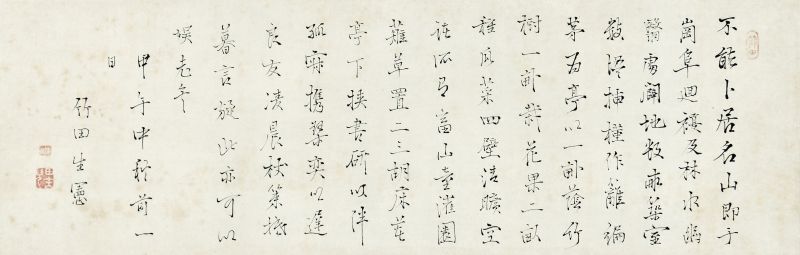 不能卜居名山即于
崗阜迴複及林水幽
翳處闢地數畝築室
數楹插槿作籬編
茅為亭以一畝蔭竹
樹一畝栽花果二畝
種瓜菜四壁清曠空
諸所有畜山童灌園
薙草置二三胡床著
亭下挾書研以伴
孤寂攜琴奕以遲
良友凌晨杖策抵
暮言旋此亦可以
娛老矣
甲午中秋前一
日
竹田生憲